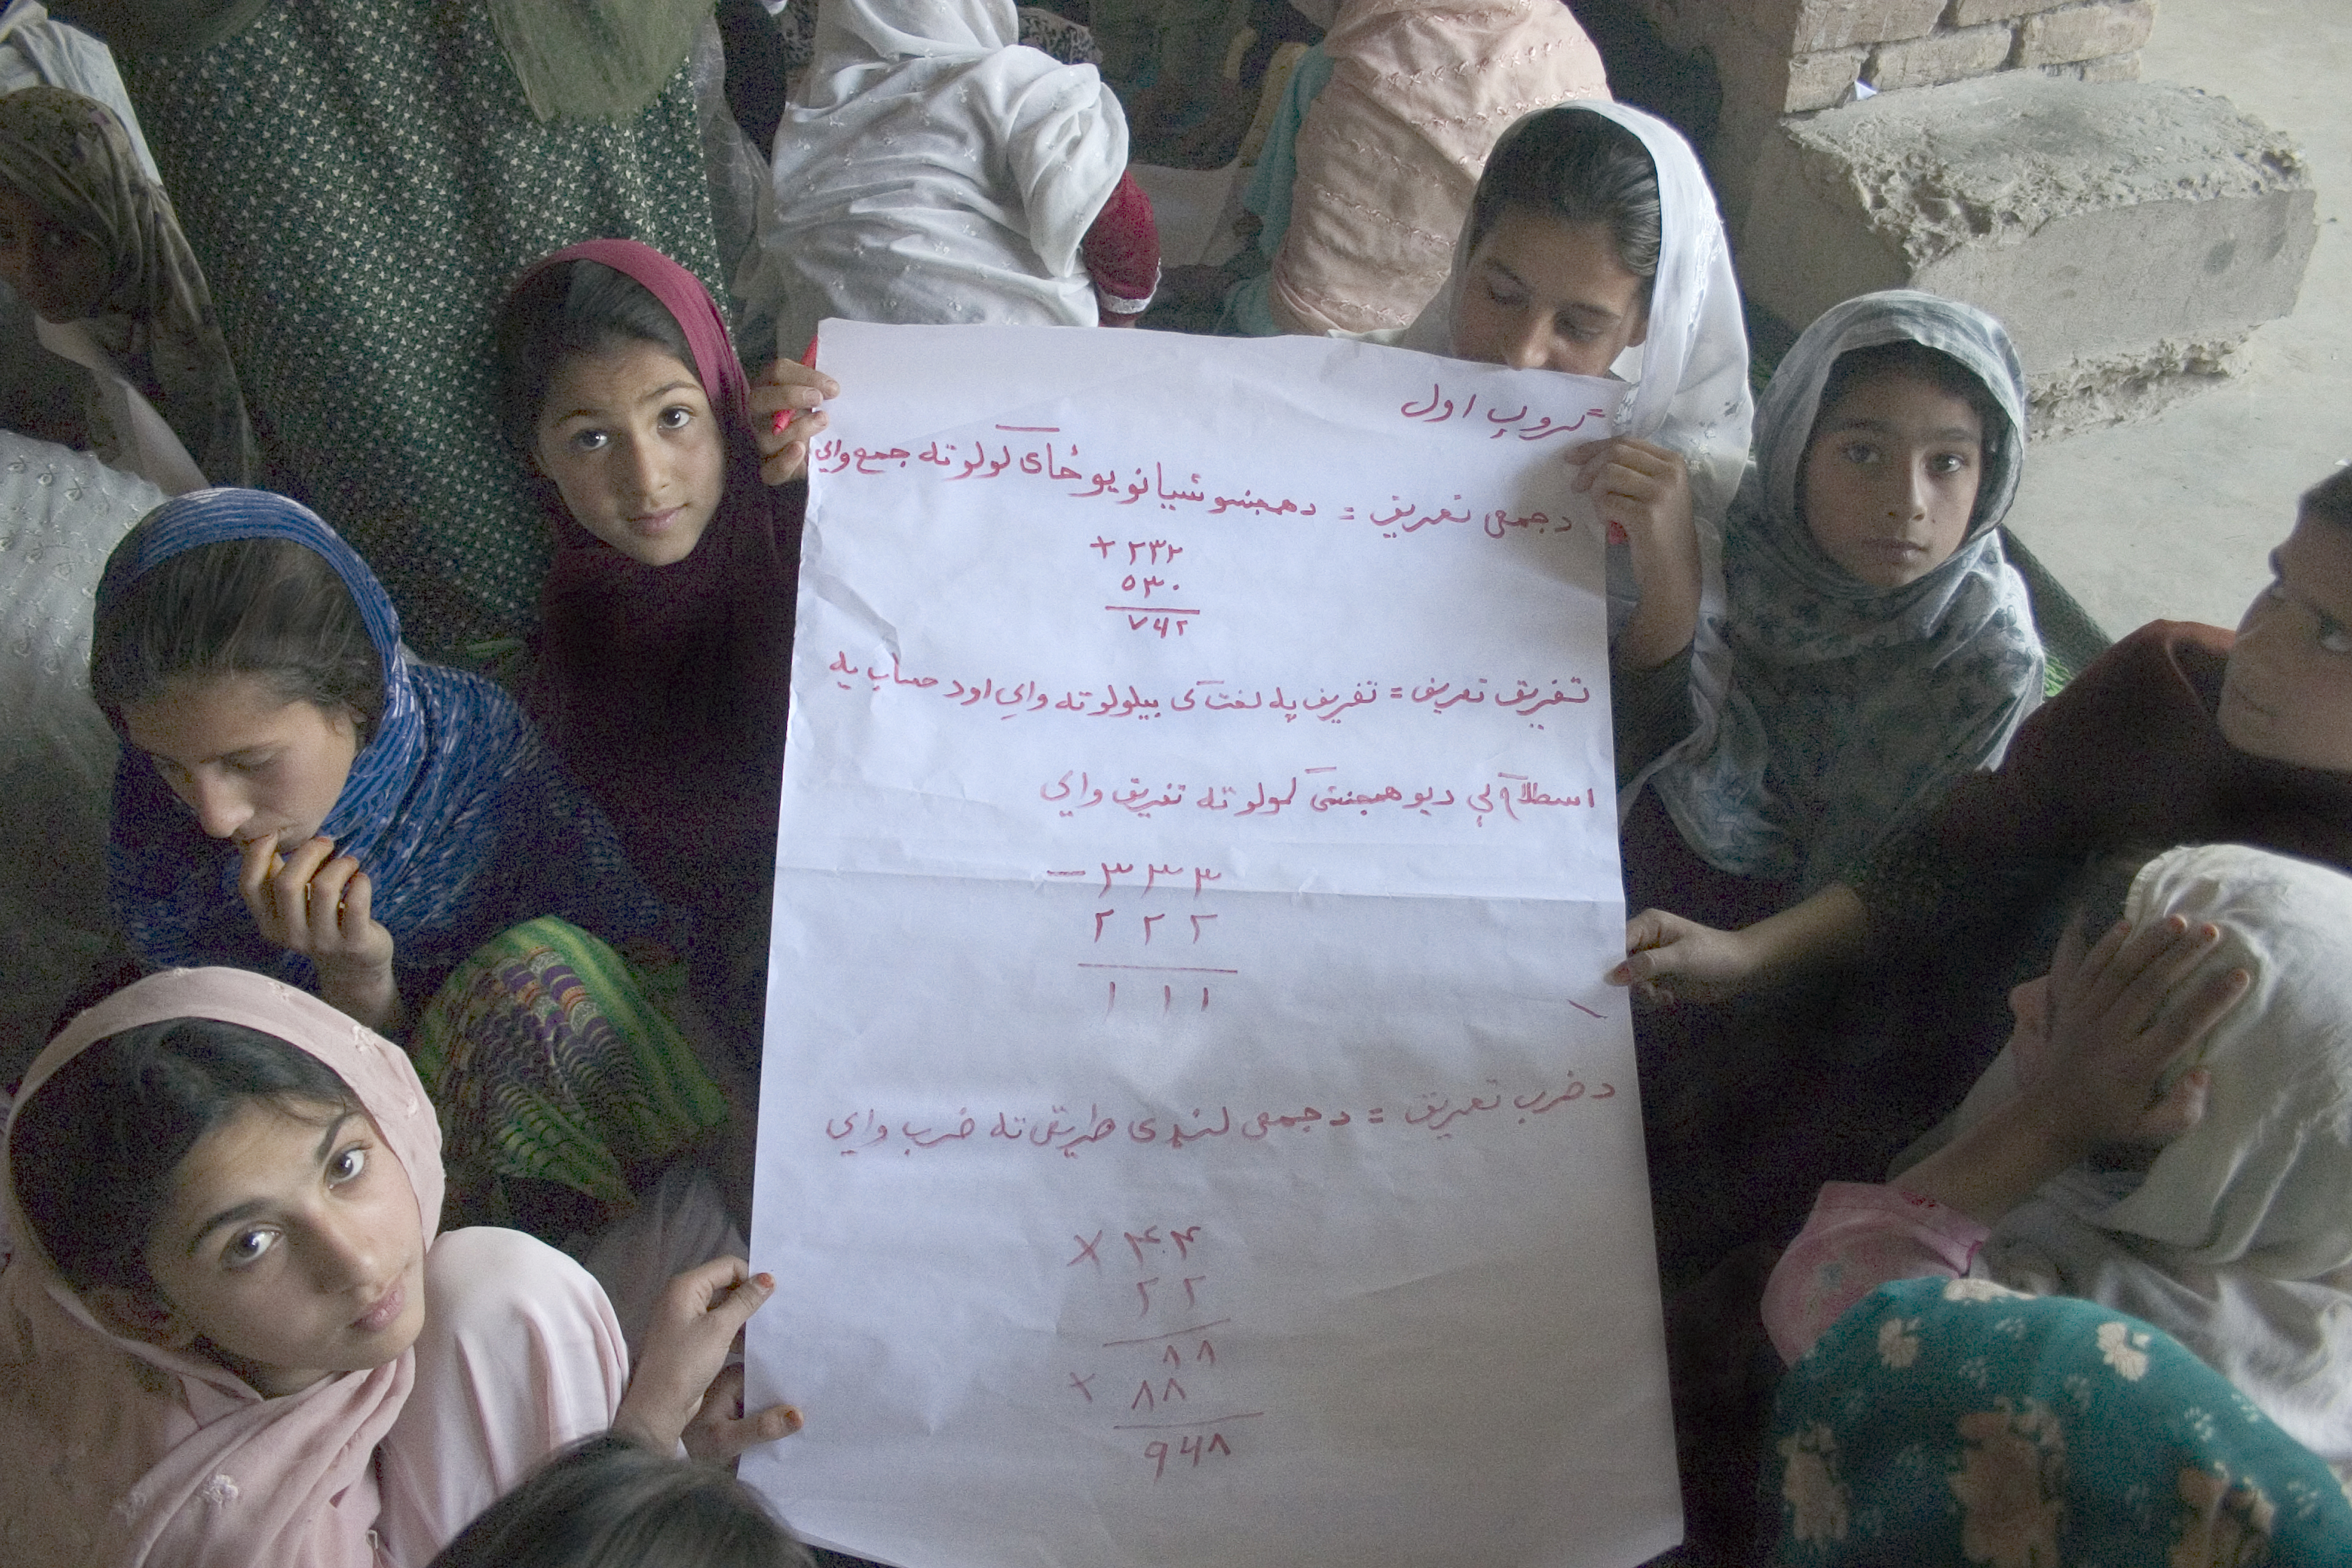 گروپ اول =
د جمعی تعریف = د همجنسو شیانو یو ځای کولو ته جمع وایي
+ ۲۳۲
۵۳۰
۷۶۲
تفریق تعریف = تفریق په لغت کی بیلولو ته وایي او د حساب په
اسطلاح کې د یو همجنس کمولو ته تفریق وایي
− ۳۳۳
۲۲۲
۱۱۱
د ضرب تعریق = د جمعی لنډی طریقی ته ضرب وایي
× ۴۴
۲۲
۸۸
+ ۸۸
۹۶۸